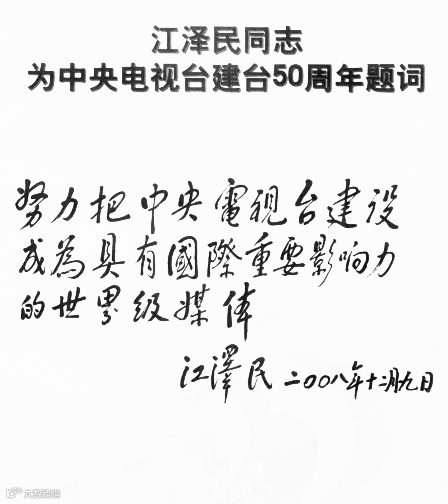 江泽民同志
为中央电视台建台50周年题词
努力把中央電視台建设
成為具有國際重要影响力
的世界级媒体
江澤民 二〇〇八年十二月九日